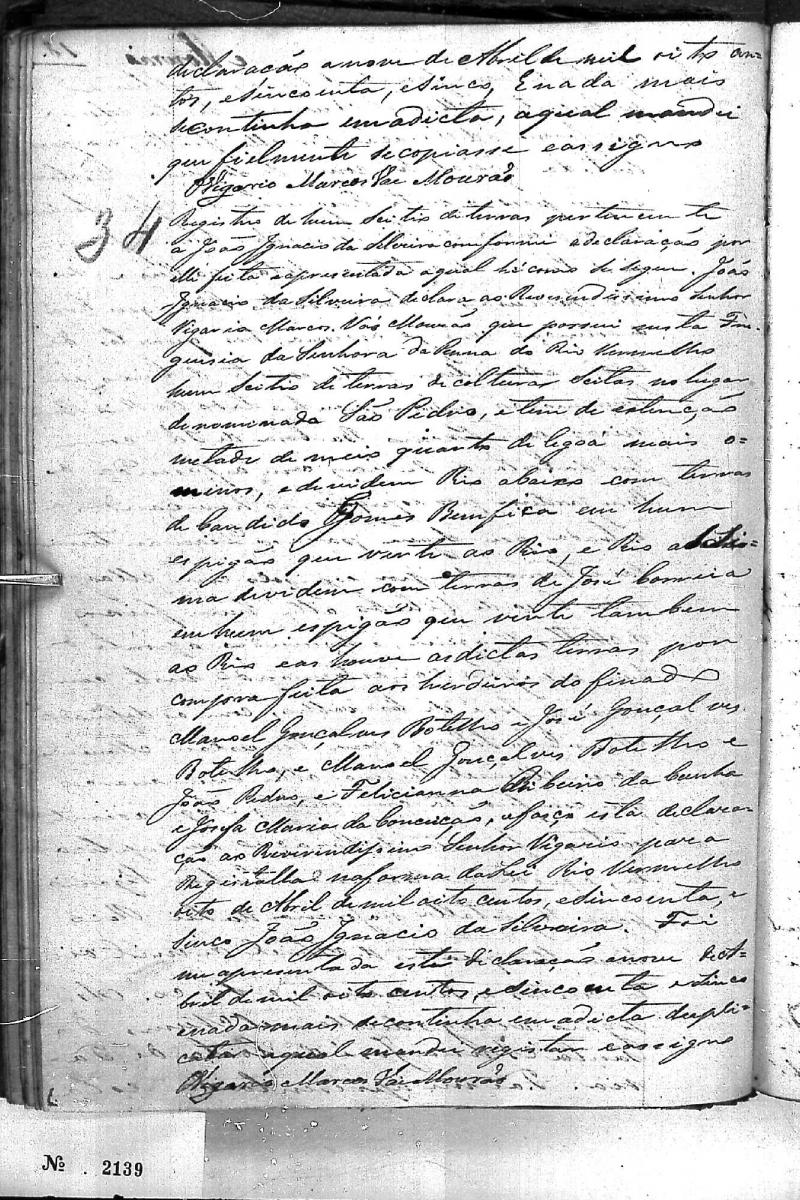 declaração a nove de Abril de mil oito cen-
tos, e sincoenta, e sinco, E nada mais
se continha em a dicta, a qual mandei
que fielmente se copiasse e assigno
O Vigario Marcos Vaz Mourão
34
Registro de hum Seitio de terras pertencente
a João Ignacio da Silveira conforme a declaração por
elle feita e apresentada a qual hé como se segue. João
Ignacio da Silveira declara ao Reverendissimo Senhor
Vigario Marcos Vás Mourão que possui nesta Fre-
guesia da Senhora da Penna do Rio Vermelho
hum Seitio de terras de colturas Seitas no lugar
denominado São Pedro, e tem de estenção
metade de meio quarto de legoa mais o-
menos, e devidem Rio abaixo com terras
de Candido Gomes Bemfica em hum
espigão que verte ao Rio, e Rio aSsi-
ma dividem com terras de José Correia
em hum espigão que verte tambem
ao Rio e as houve as dictas terras por
compra feita aos herdeiros do finado
Manoel Gonçalves Botelho e José Gonçalves
Botelho, e Manoel Gonçalves Botelho e
João Pedro, e Felicianna Ribeiro da Cunha
e Josefa Maria da Conceição, e faço esta declara-
ção ao Reverendissimo Senhor Vigario para
Registalla na forma da Lei Rio Vermelho
oito de Abril de mil oito centos, e sincoenta, e
sinco João Ignacio da Silveira. Foi
me apresentada esta declaração a nove de A-
bril de mil oito centos, e sincoenta e sinco
e nada mais se continha em a dicta dupli-
cata a qual mandei registar e assigno
O Vigario Marcos Vaz Mourão
Nº . 2139